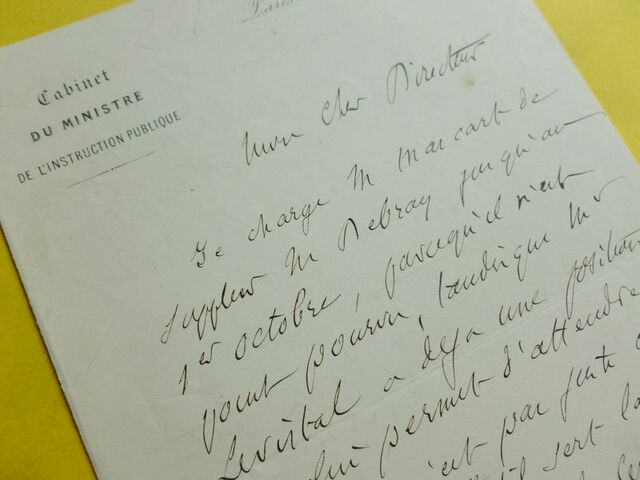 Paris
Cabinet
DU MINISTRE
DE L'INSTRUCTION PUBLIQUE
Mon Cher Directeur
Je charge M Mascart de
suppléer M Debray jusqu'au
1er octobre, parcequ'il n'est
point pourvu, tandis que Mr
Levistal a deja une position
qui permet d'attendre
n'est pas juste
qu'il sert la